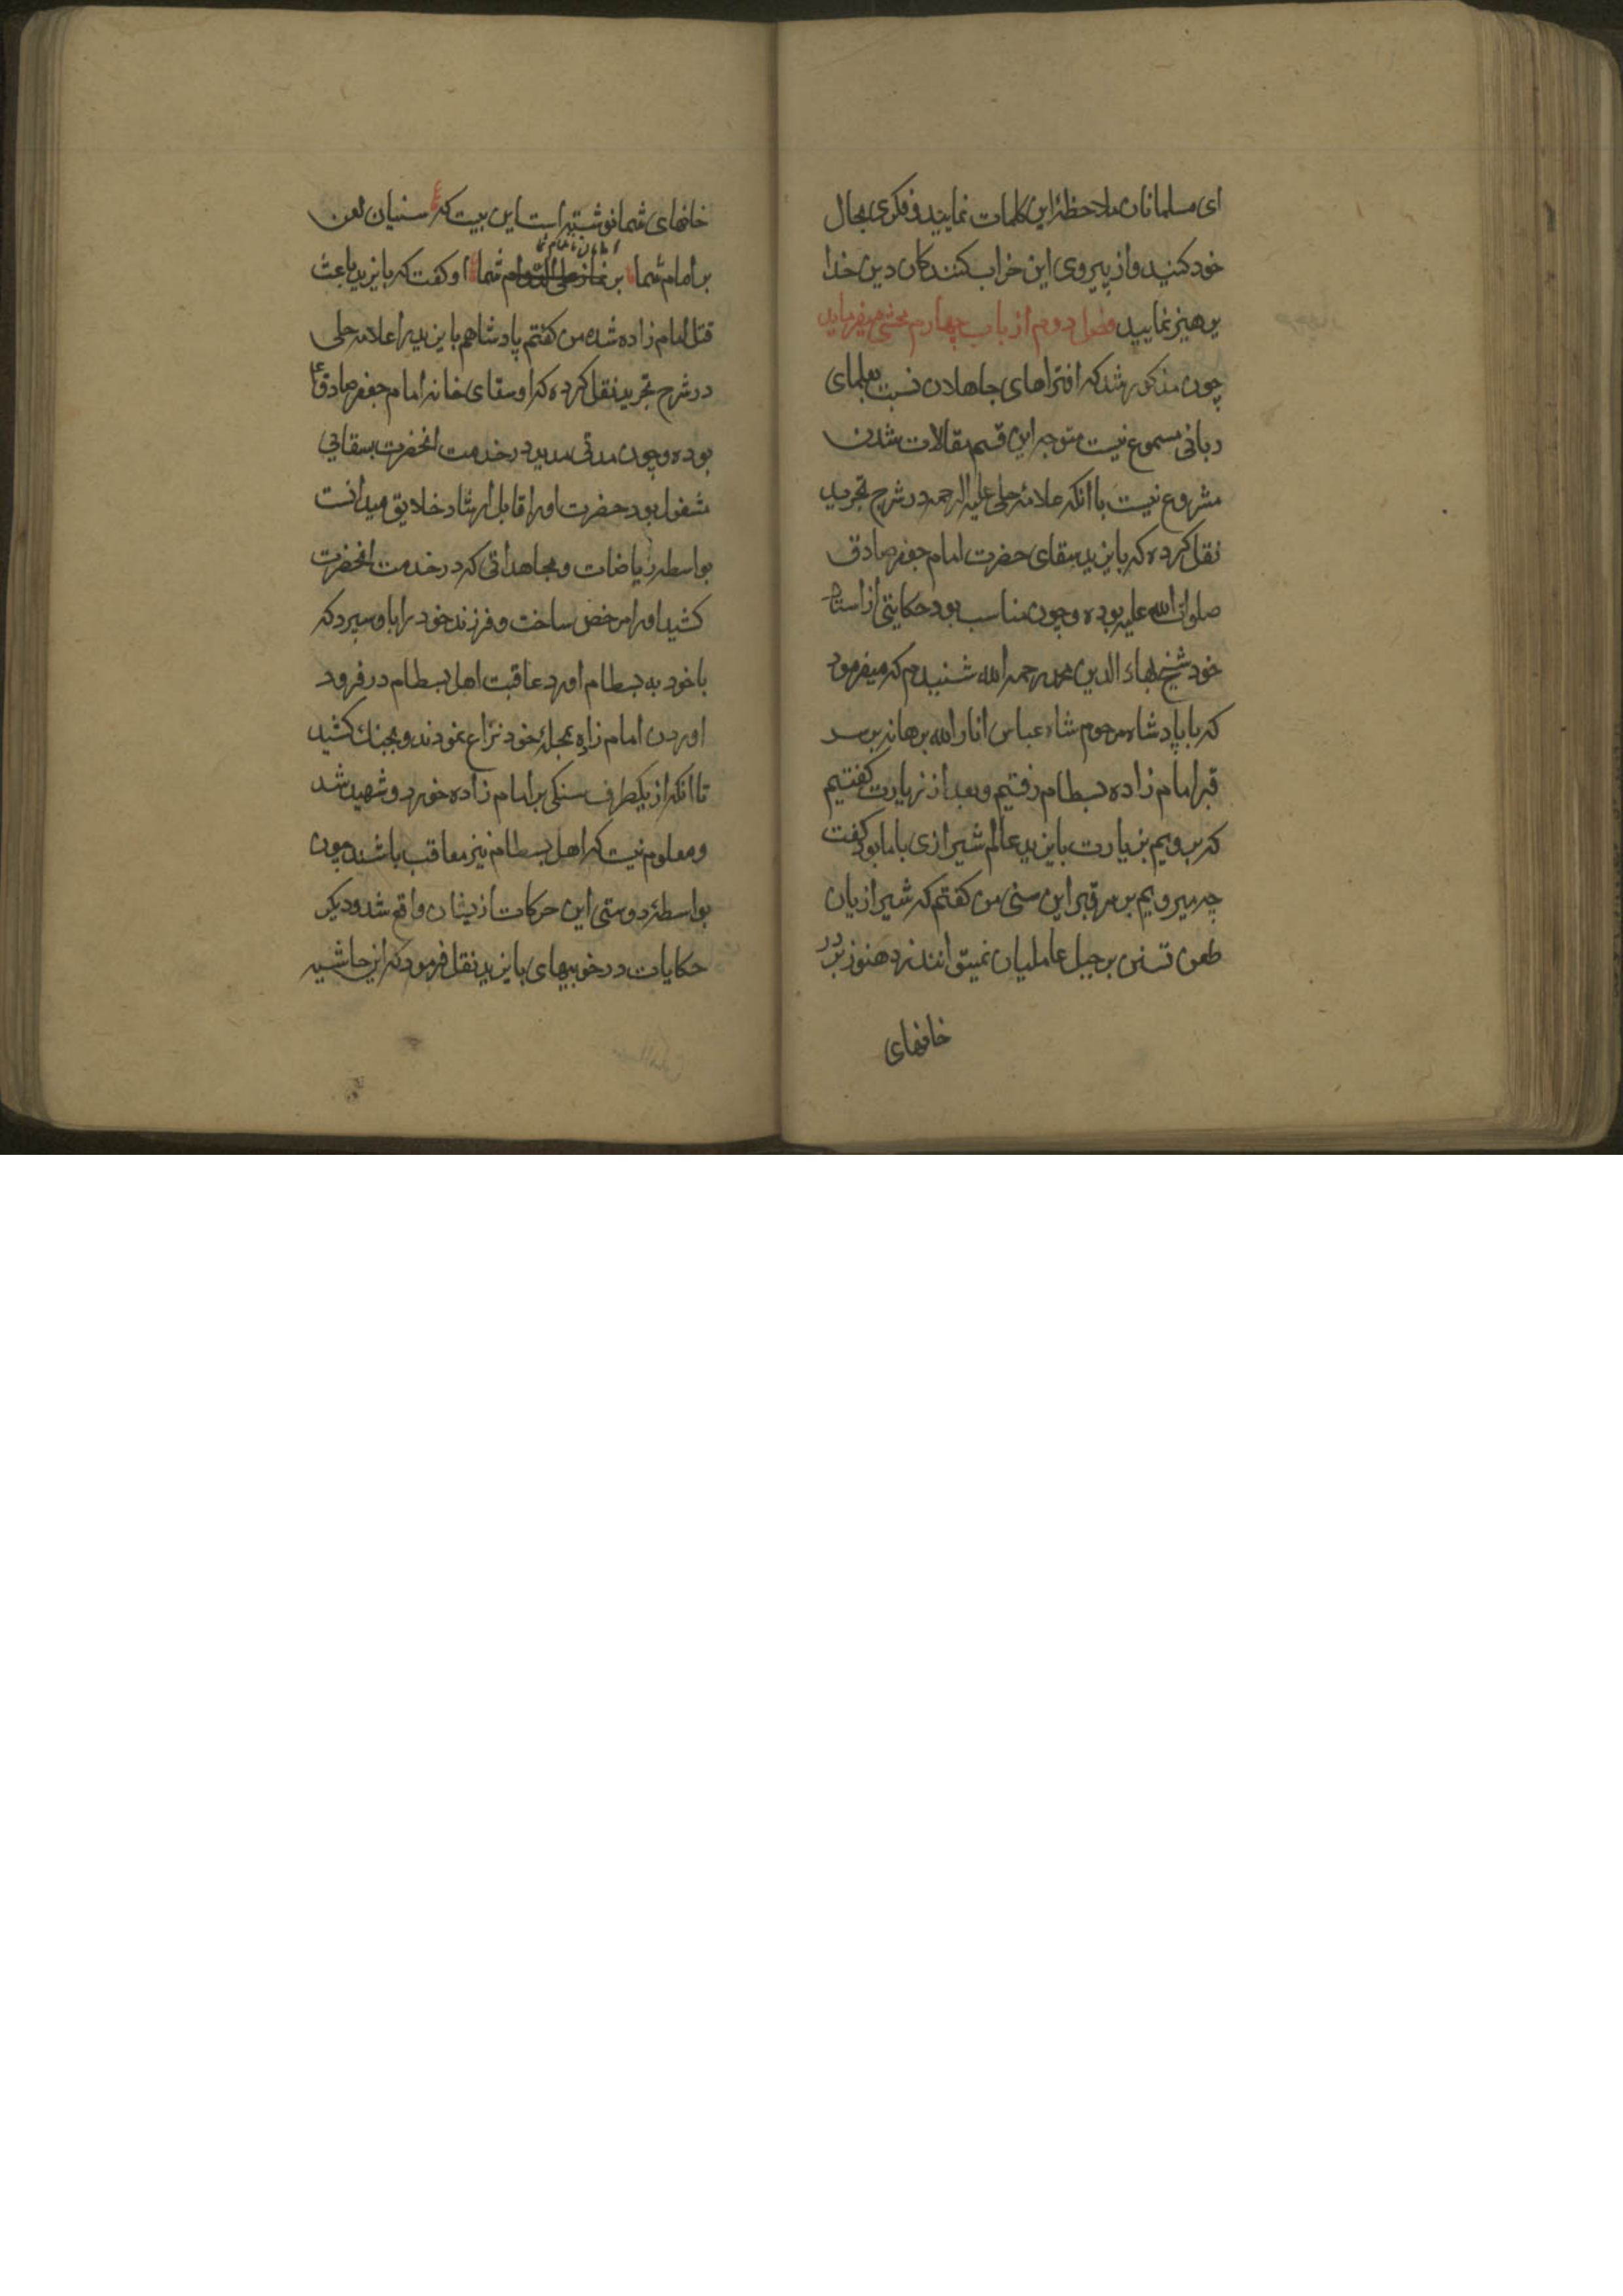 ای مسلمانان ملاحظهٔ این کلمات نمایند و فکری بحال
خود کنید و از پیروی این خراب کنندکان دین خدا
پرهیز نمایید فصل دوم از باب چهارم محشی میفرماید
چون مذکور شد که افتراهای جاهلان نسبت بعلمای
ربانی مسموع نیست متوجه این قسم مقالات شدن
مشروع نیست با انکه علامهٔ حلی علیه الرحمه در شرح تجرید
نقل کرده که بایزید سقای حضرت امام جعفر صادق
صلوات الله علیه بوده و چون مناسب بود حکایتی از استاد
خود شیخ بهاء الدین محمد رحمه الله شنیدم که میفرمود
که با پادشاه مرحوم شاه عباس انار الله برهانه بر سر
قبر امام زاده بسطام رفتیم و بعد از زیارت کفتیم
که برویم بزیارت بایزید عالم شیرازی با ما بود کفت
چه میرویم بر سر قبر این سنی من کفتم که شیرازیان
طعن تسنن بر جبل عاملیان نمیتوانند زد هنوز بر در
خانهای
خانهای شما نوشته است این بیت که سنیان لعن
بر امام شما بر شما او کفت که بایزید باعث
قتل امام زاده شده من کفتم پادشاهم بایزید را علامه حلی
در شرح تجرید نقل کرده که او سقای خانه امام جعفر صادق ع
بوده و چون مدتی مدید در خدمت انحضرت بسقایی
مشغول بود حضرت او را قابل ارشاد خلایق میدانست
بواسطه ریاضات و مجاهداتی که در خدمت انحضرت
کشید او را مرخص ساخت و فرزند خود را با او سپرد که
با خود به بسطام اورد عاقبت اهل بسطام در فرود
اوردن امام زاده بمحلهٔ خود نزاع نمودند و بجنك کشید
تا انکه از یکطرف سنکی بر امام زاده خورد و شهید شد
و معلوم نیست که اهل بسطام نیز معاقب باشند چون
بواسطهٔ دوستی این حرکات ازیشان واقع شد و دیکر
حکایات در خوبیهای بایزید نقل فرمود که این حاشیه